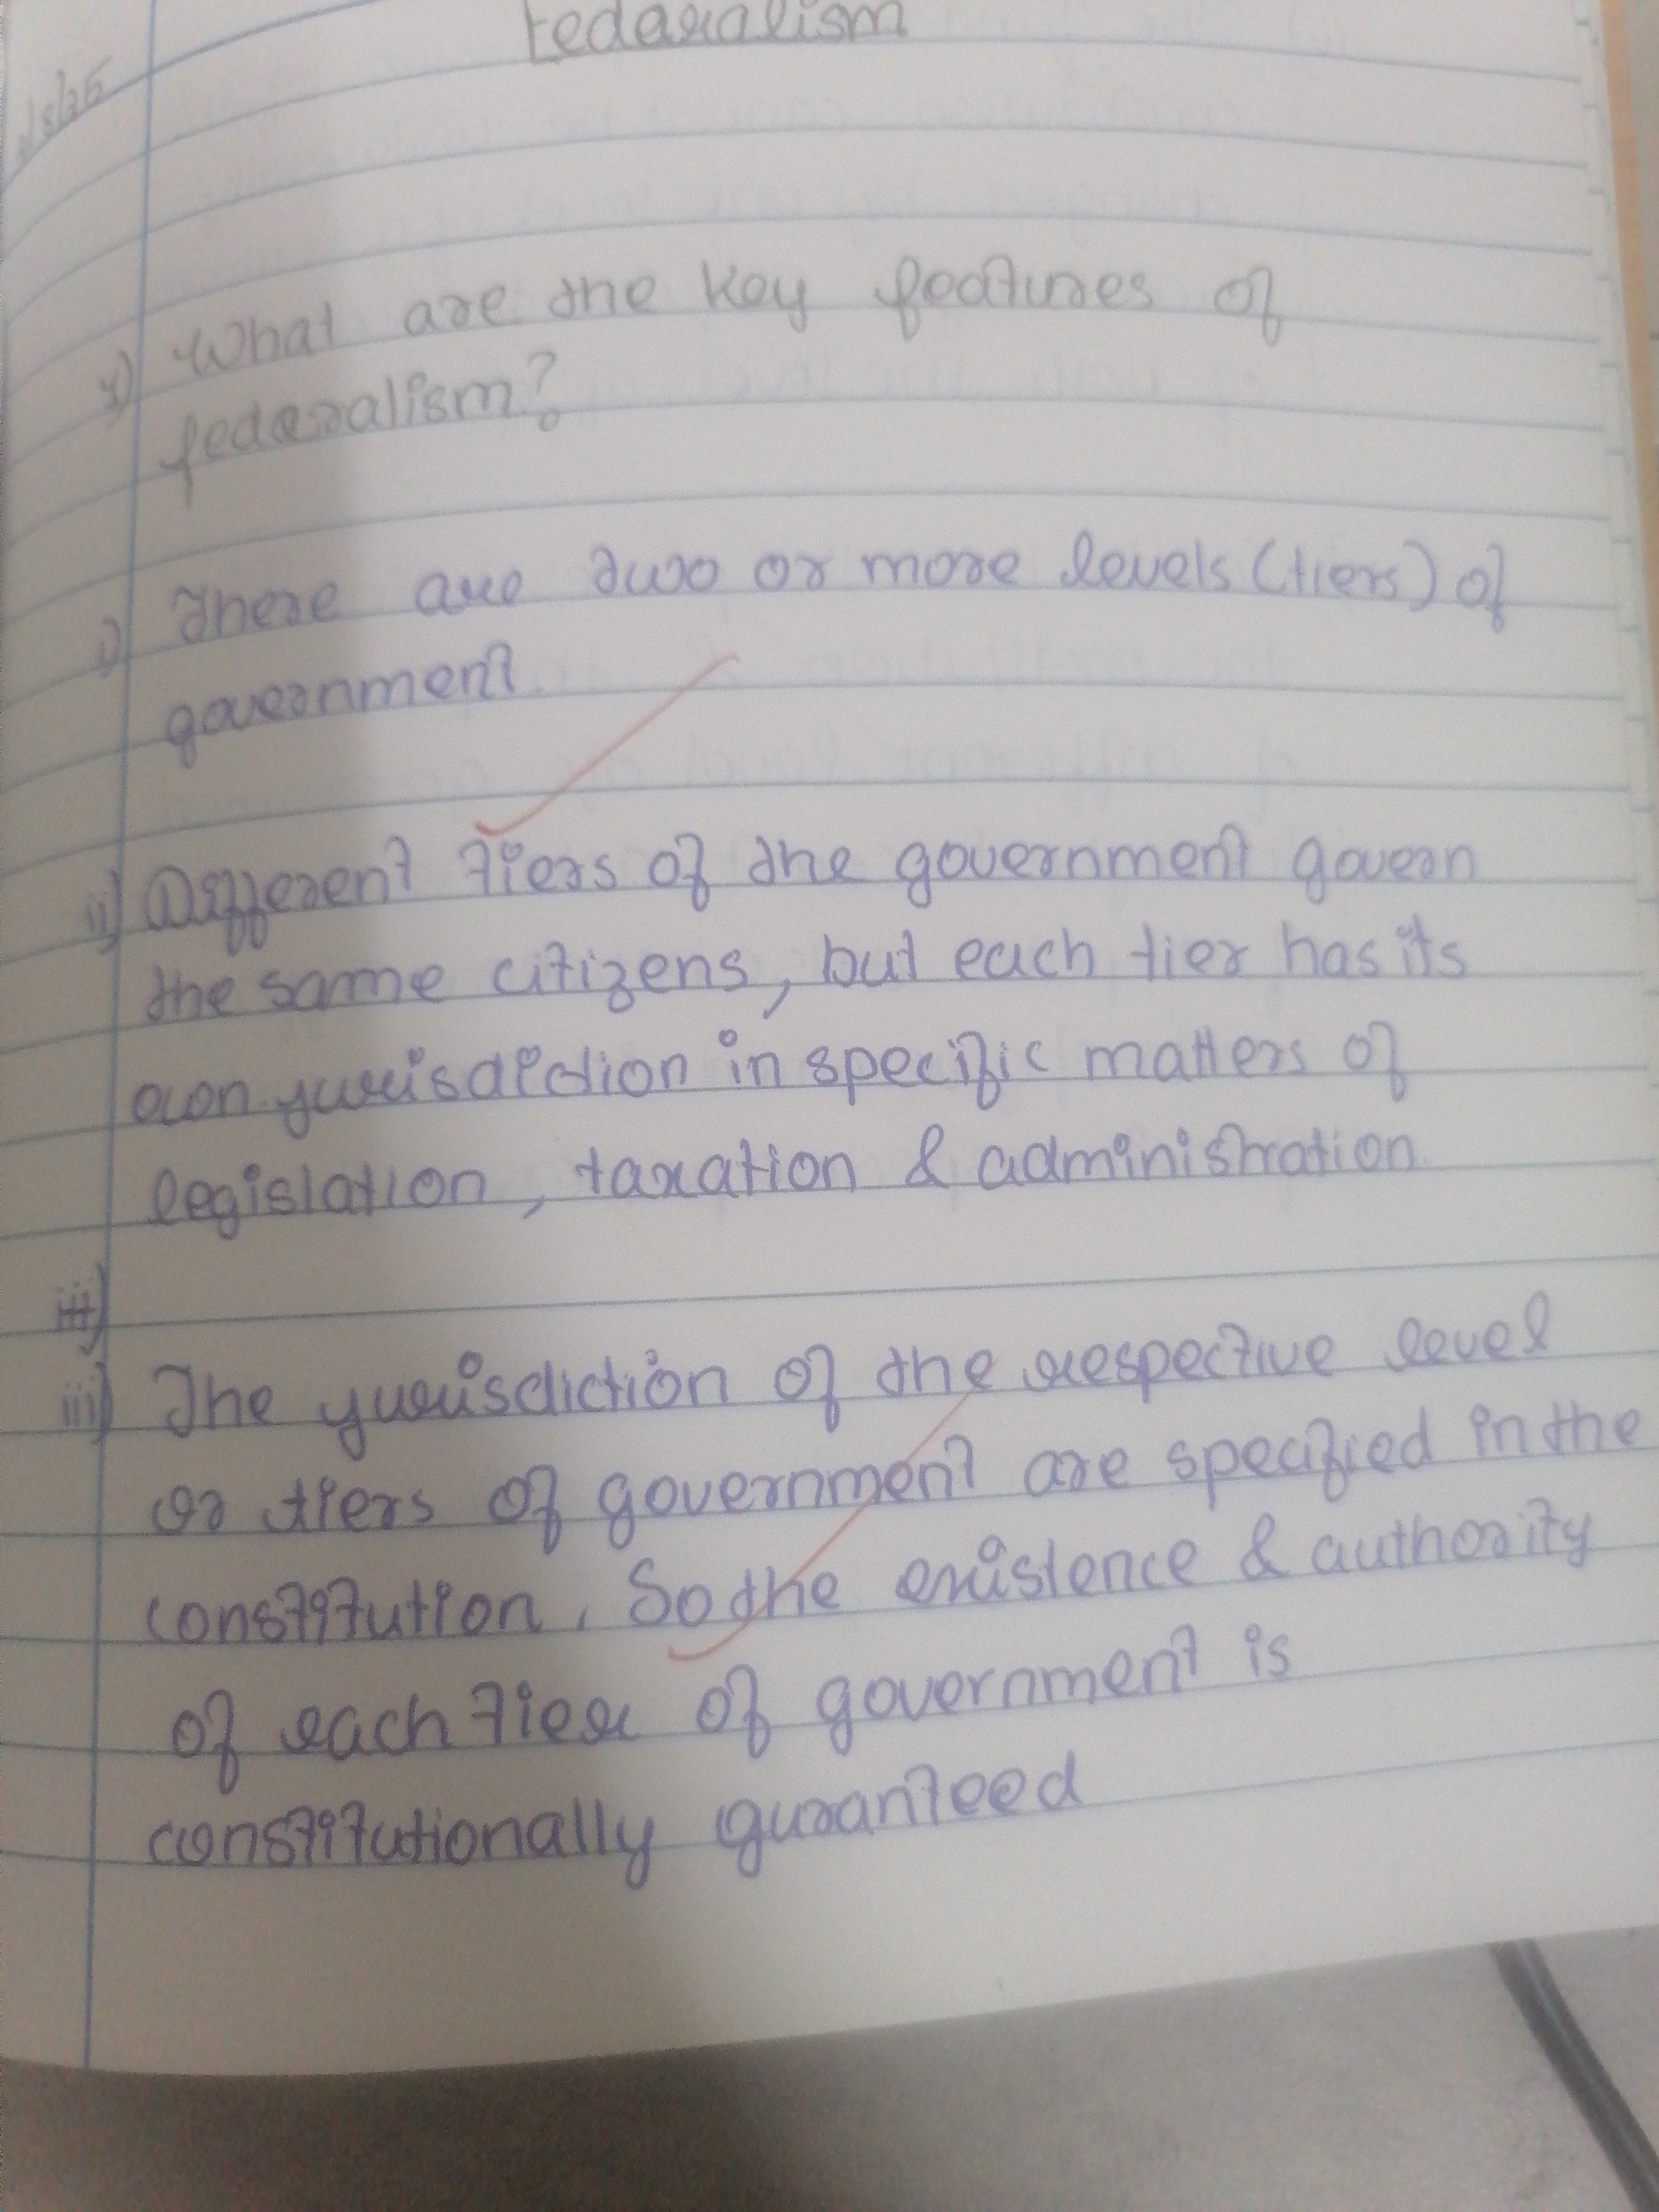 Fedaralism
1) What are the key features of
fedaralism?
i) There are two or more levels (tiers) of
government
ii) Different tiers of the government govern
the same citizens, but each tier has its
own yurisdiction in specific matters of
legislation, taxation & administration
iii)
iii) The yurisdiction of the respective level
or tiers of government are specified in the
constitution. So the existence & authority
of each tier of government is
constitutionally guranteed